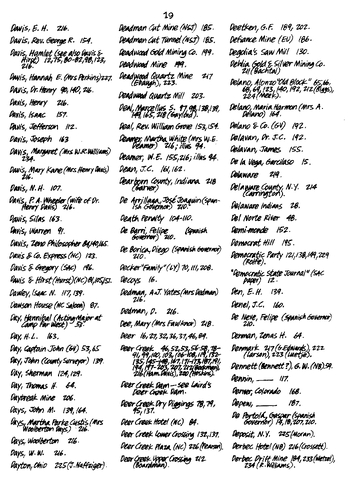 19
Davis, E. H. 216.
Davis, Rev. George R. 154.
Davis, Hamlet (see also Davis &
Hirst) 12, 75, 80-82, 98, 123,
216.
Davis, Hannah E. (Mrs. Perkins) 227.
Davis, Dr. Henry 90, 140, 216.
Davis, Henry 216.
Davis, Isaac 157.
Davis, Jefferson 112.
Davis, Joseph 163
Davis, Margaret (Mrs W.R. Williams)
234.
Davis, Mary Kane (Mrs Henry Davis)
216.
Davis, N. H. 107.
Davis, P. A. Wheeler (wife of Dr.
Henry Davis) 216.
Davis, Silas 163.
Davis, Warren 91.
Davis, Zeno Philosopher 84, 140, 165.
Davis & Co. Express (NC) 123.
Davis & Gregory (SAC) 196.
Davis & Hirst (Hurst) (NC)
Dawley, Isaac N. 137, 139.
Dawson House (NC Saloon) 87.
Day, Hannibal (Acting Major at
Camp Far West) 52.
Day, H. L. 163.
Day, Captain John (G4) 53, 65
Day, John (County Surveyor) 139.
Day, Sherman 124, 129.
Day, Thomas H. 64.
Daybreak Mine 206.
Days, John M. 139, 164.
Days, Martha Parke Custis (Mrs
Woolberton Days) 216.
Days, Woolberton 216.
Days, W. W. 216.
Dayton, Ohio 225 (J. Neffziger).
Deadman Cut Mine (H&J) 185.
Deadman Cut Tunnel (H&J) 185.
Deadwood Gold Mining Co. 199.
Deadwood Mine 199.
Deadwood Quartz Mine 217
(Ebaugh), 223.
Deadwood Quartz Mill 203.
Deal, Marcellus S. 97, 98, 138, 139,
149, 165, 218 (Gaylord).
Deal, Rev. William Grove 153, 154.
Deamer, Martha White (Mrs W. E.
Deamer) 216; illus 94.
Deamer, W. E. 155, 216; illus 94.
Dean, J. C. 161, 162.
Dearborn County, Indiana 218
(Garver)
De Arrillaga, José Joaquin (Span-
ish Governor) 210.
Death Penalty 104-110.
De Barri, Felipe (Spanish
Governor) 210.
De Borica, Diego (Spanish Governor)
210.
"Decker Family" (LY) 70, 111, 208.
Decoys 16.
Dedman, A. J. Yates (Mrs Dedman)
216.
Dedman, D. 216.
Dee, Mary (Mrs Fawkner) 218.
Deer 16, 27, 32, 36, 37, 46, 49.
Deer Creek
Deer Creek Dam – see Laird's
Deer Creek Dam.
Deer Creek Dry Diggings 78, 79,
95, 137.
Deer Creek Hotel (NC) 84.
Deer Creek Lower Crossing 132, 137.
Deer Creek Plaza, (NC) 216 (Pearson).
Deer Creek Upper Crossing 212
(Boardman).
Deetken, G. F. 189, 202.
Defiance Mine (EU) 186.
Degolia's Saw Mill 130.
Dehlia Gold & Silver Mining Co.
211 (Bachtal)
Delano, Alonzo "Old Block" 65, 66,
68, 69, 123, 140, 192, 212 (Bixby),
224 (Meek).
Delano, Maria Harmon (Mrs. A.
Delano) 164.
Delano & Co. (GV) 192.
Delavan, Dr. J. C. 192.
Delavan, James 155.
De la Vega, Garcilaso 15.
Delaware 219.
Delaware County, N. Y. 214
(Carrington).
Delaware Indians 28.
Del Norte River 48.
Demi-monde 152.
Democrat Hill 195.
Democratic Party 121, 138, 149, 229
"Democratic State Journal" (SAC
paper) 12.
Den, E. H. 139.
Denel, J. C. 160.
De Neve, Felipe (Spanish Governor)
210.
Denman, Jonas H. 64.
Denmark 217 (G. Edwards), 222
(Larsen), 223 (Luetje).
Dennett (Bennett?), G. W. (NB) 59.
Dennin, ___ 117.
Denver, Colorado 168.
Depew, ___ 187.
De Portolá, Gaspar (Spanish
Governor) 19, 78, 207, 210.
Deposit, N. Y. 225 (Moran).
Derbec Hotel (NB) 216 (Crossett).
Derbec Drift Mine 184, 233 (Watson),
234 (R. Williams).